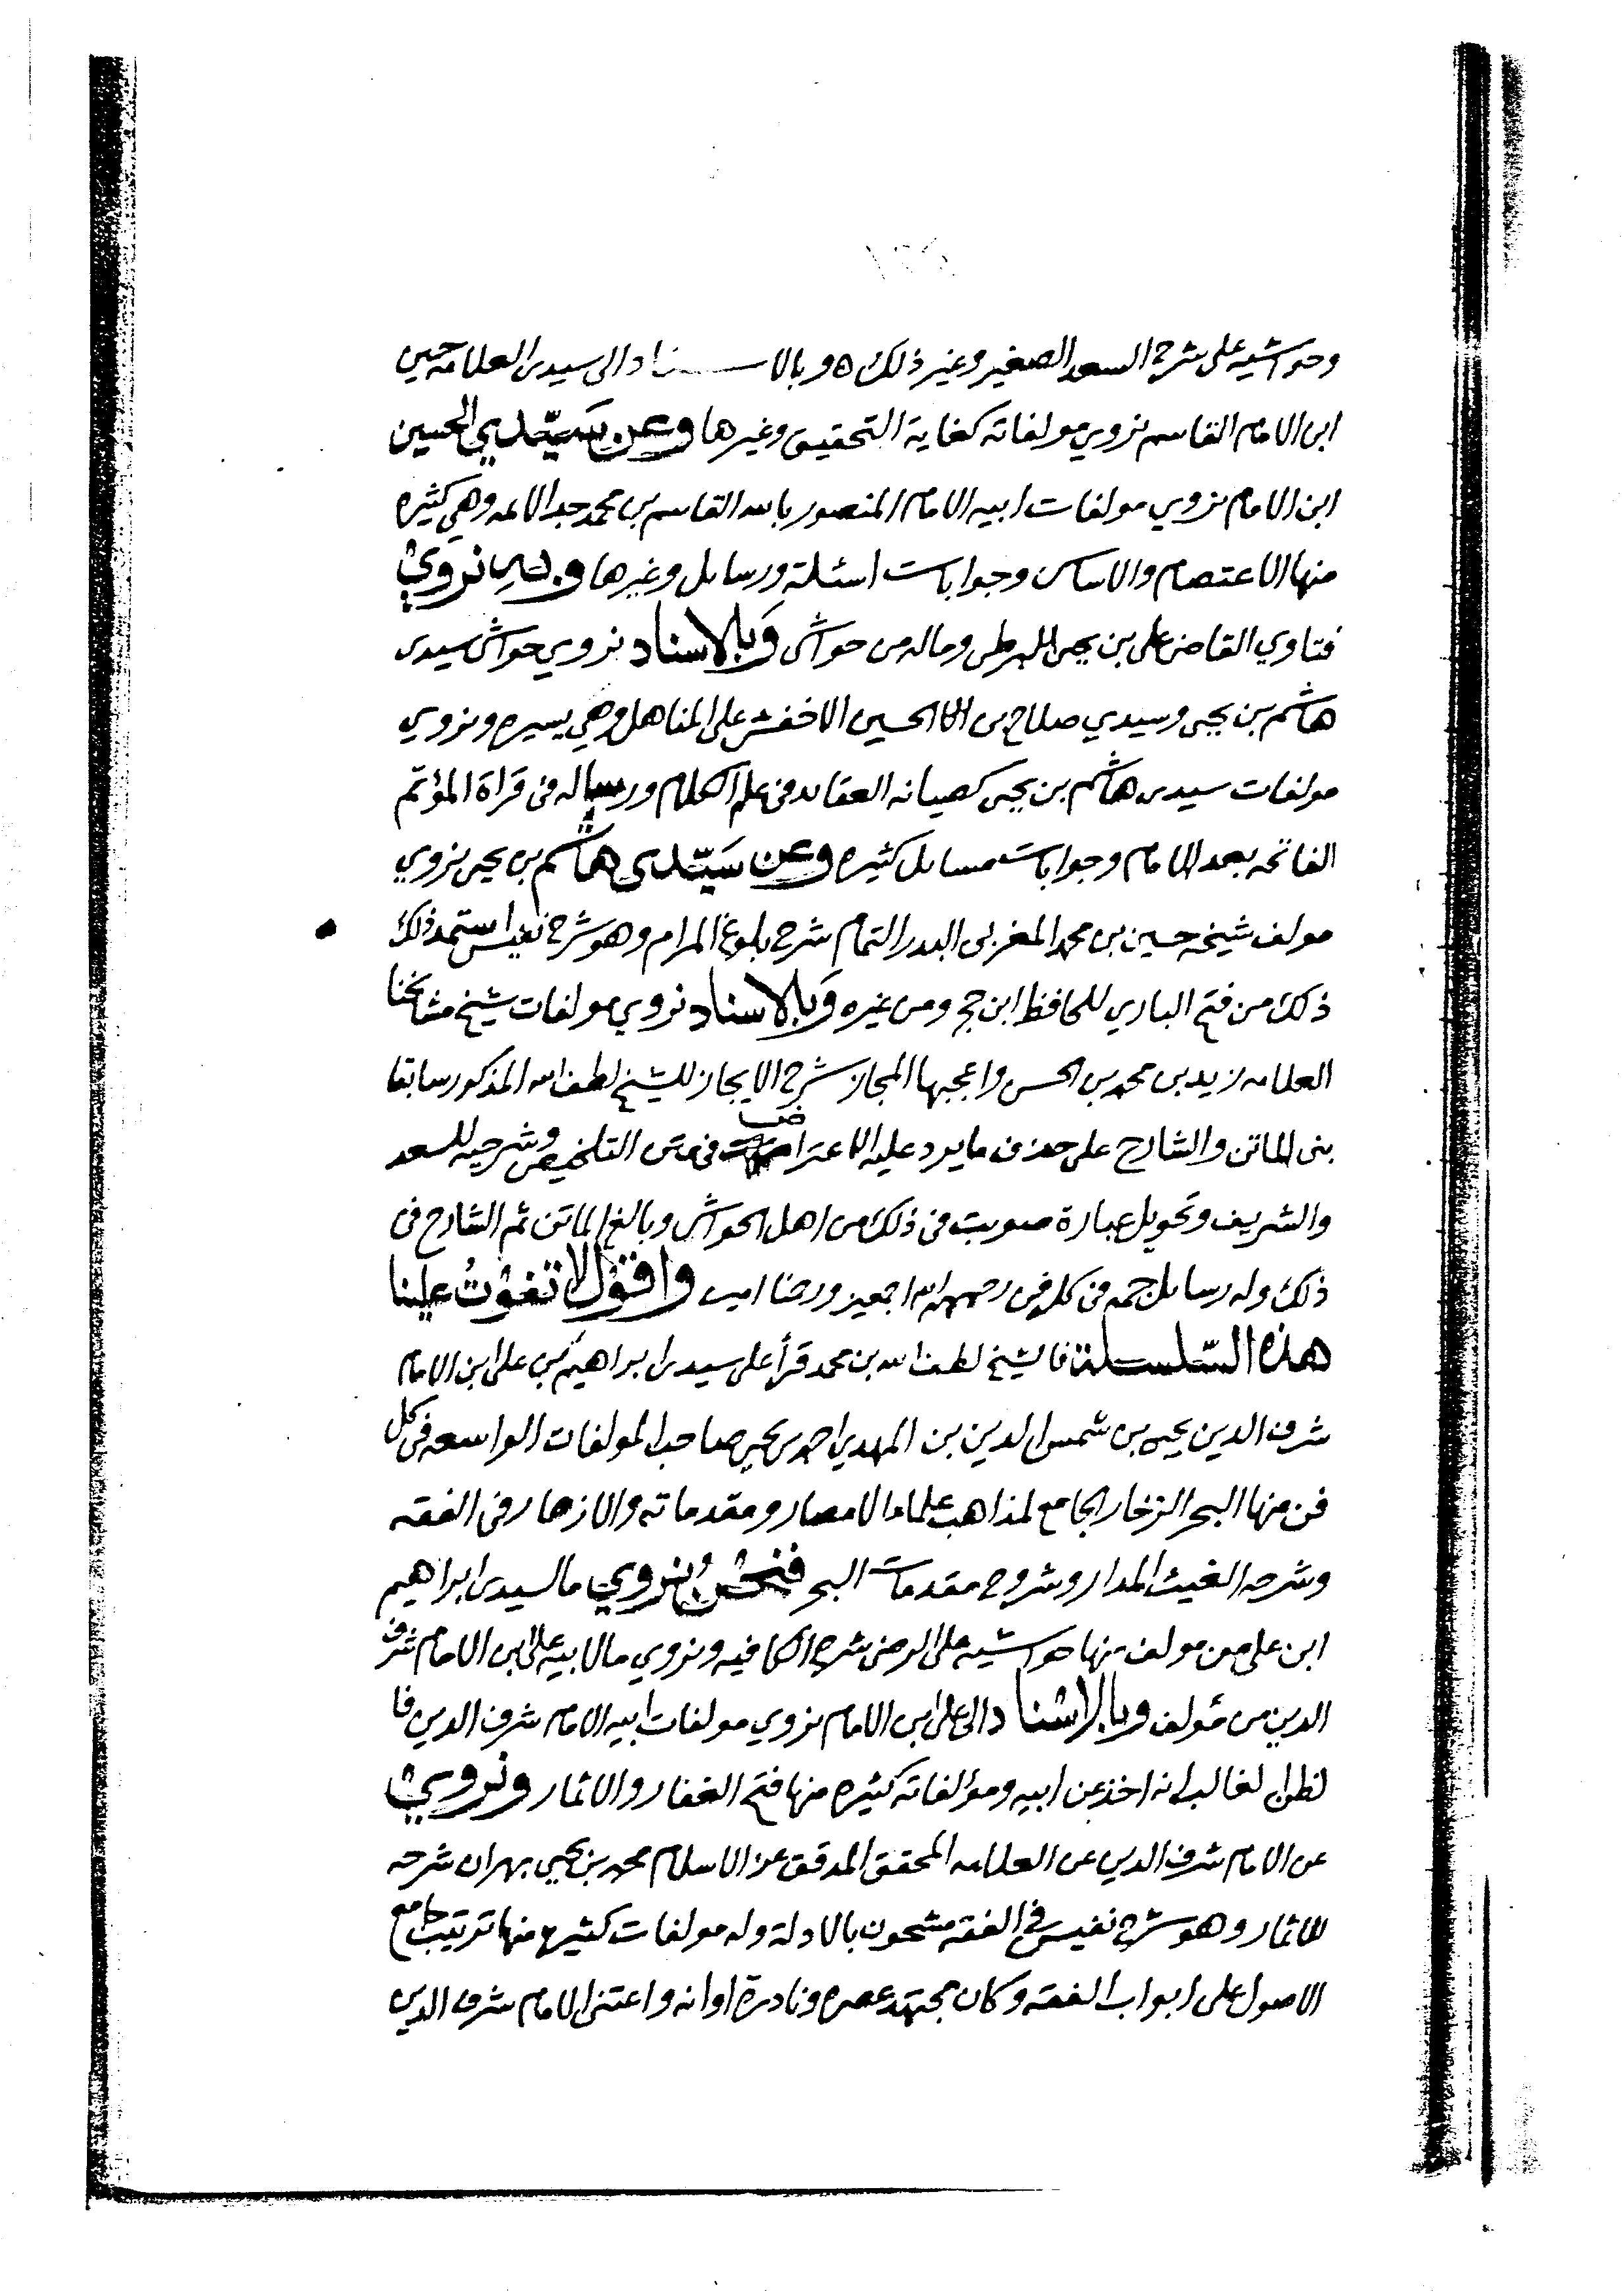 وحواشيه على شرح السعد الصغير وغير ذلك ه وبالاسناد الى سيدى العلامه حسين
ابن الامام القاسم نروي مولفاته كغاية التحقيق وغيرها وعن سَيّدي الحسين
ابن الامام نروي مولفات ابيه الامام المنصور بالله القاسم بن محمد جد الائمه وهي كثيره
منها الاعتصام والاساس وجوابات اسئلة ورسايل وغيرها وبه نروي
فتاوي القاضى على بن يحيى وماله من حواشى وَبالاسناد نروي حواشى سيدى
هاشم بن يحيى وسيدي صلاح بن الحسين الاخفش على المناهل وهي يسيره ونروي
مولفات سيدى هاشم بن يحيى كصيانه العقايد فى علم الكلام ورساله فى قراة المؤتم
الفاتحه بعد الامام وجوابات مسايل كثيره وعن سَيّدى هاشم بن يحيى نروي
مولف شيخه حسين بن محمد المغربى البدر التمام شرح بلوغ المرام وهو شرح نفيس استمد ذلك
ذلك من فتح الباري للحافظ ابن حجر ومن غيره وَبالاسناد نروي مولفات شيخ مشائخنا
العلامه زيد بن محمد بن الحسن واعجبها المجاز شرح الايجاز للشيخ لطف الله المذكور سابقا
بنى الماتن والشارح على حذف ما يرد عليه الاعتراض فى متن التلخيص وشرحيه للسعد
والشريف وتحويل عبارة صوبت فى ذلك من اهل الحواشى وبالغ الماتن ثم الشارح فى
ذلك وله رسايل جمه فى كل فن رحمهم الله اجمعين ورضنا امين واقول لا تفوتُ علينا
هذه السّلسلة فالشيخ لطف الله بن محمد قرأ على سيدى ابراهيم بن على ابن الامام
شرف الدين يحيى بن شمس الدين بن المهدي احمد بن يحيى صاحب المولفات الواسعه فى كل
فن منها البحر الزخار الجامع لمذاهب علماء الامصار ومقدماته والازهار فى الفقه
وشرحه الغيث المدار وشروح مقدمات البحر فنحنُ نروي ما لسيدى ابراهيم
ابن على من مولف منها حواشيه على الرضى شرح الكافيه ونروي ما لابيه على ابن الامام شرف
الدين من مؤلف وبالاسناد الى على ابن الامام نروي مولفات ابيه الامام شرف الدين فا
لظن الغالب انه اخذ عن ابيه ومؤلفاته كثيره منها فتح الغفار والاثمار ونروي
عن الامام شرف الدين عن العلامه المحقق المدقق عز الاسلام محمد بن يحيى بهران شرحه
للاثمار وهو شرح نفيس في الفقه مشحون بالادلة وله مولفات كثيره منها ترتيب جامع
الاصول على ابواب الفقه وكان مجتهد عصره ونادرة اوانه واعتنى الامام شرف الدين